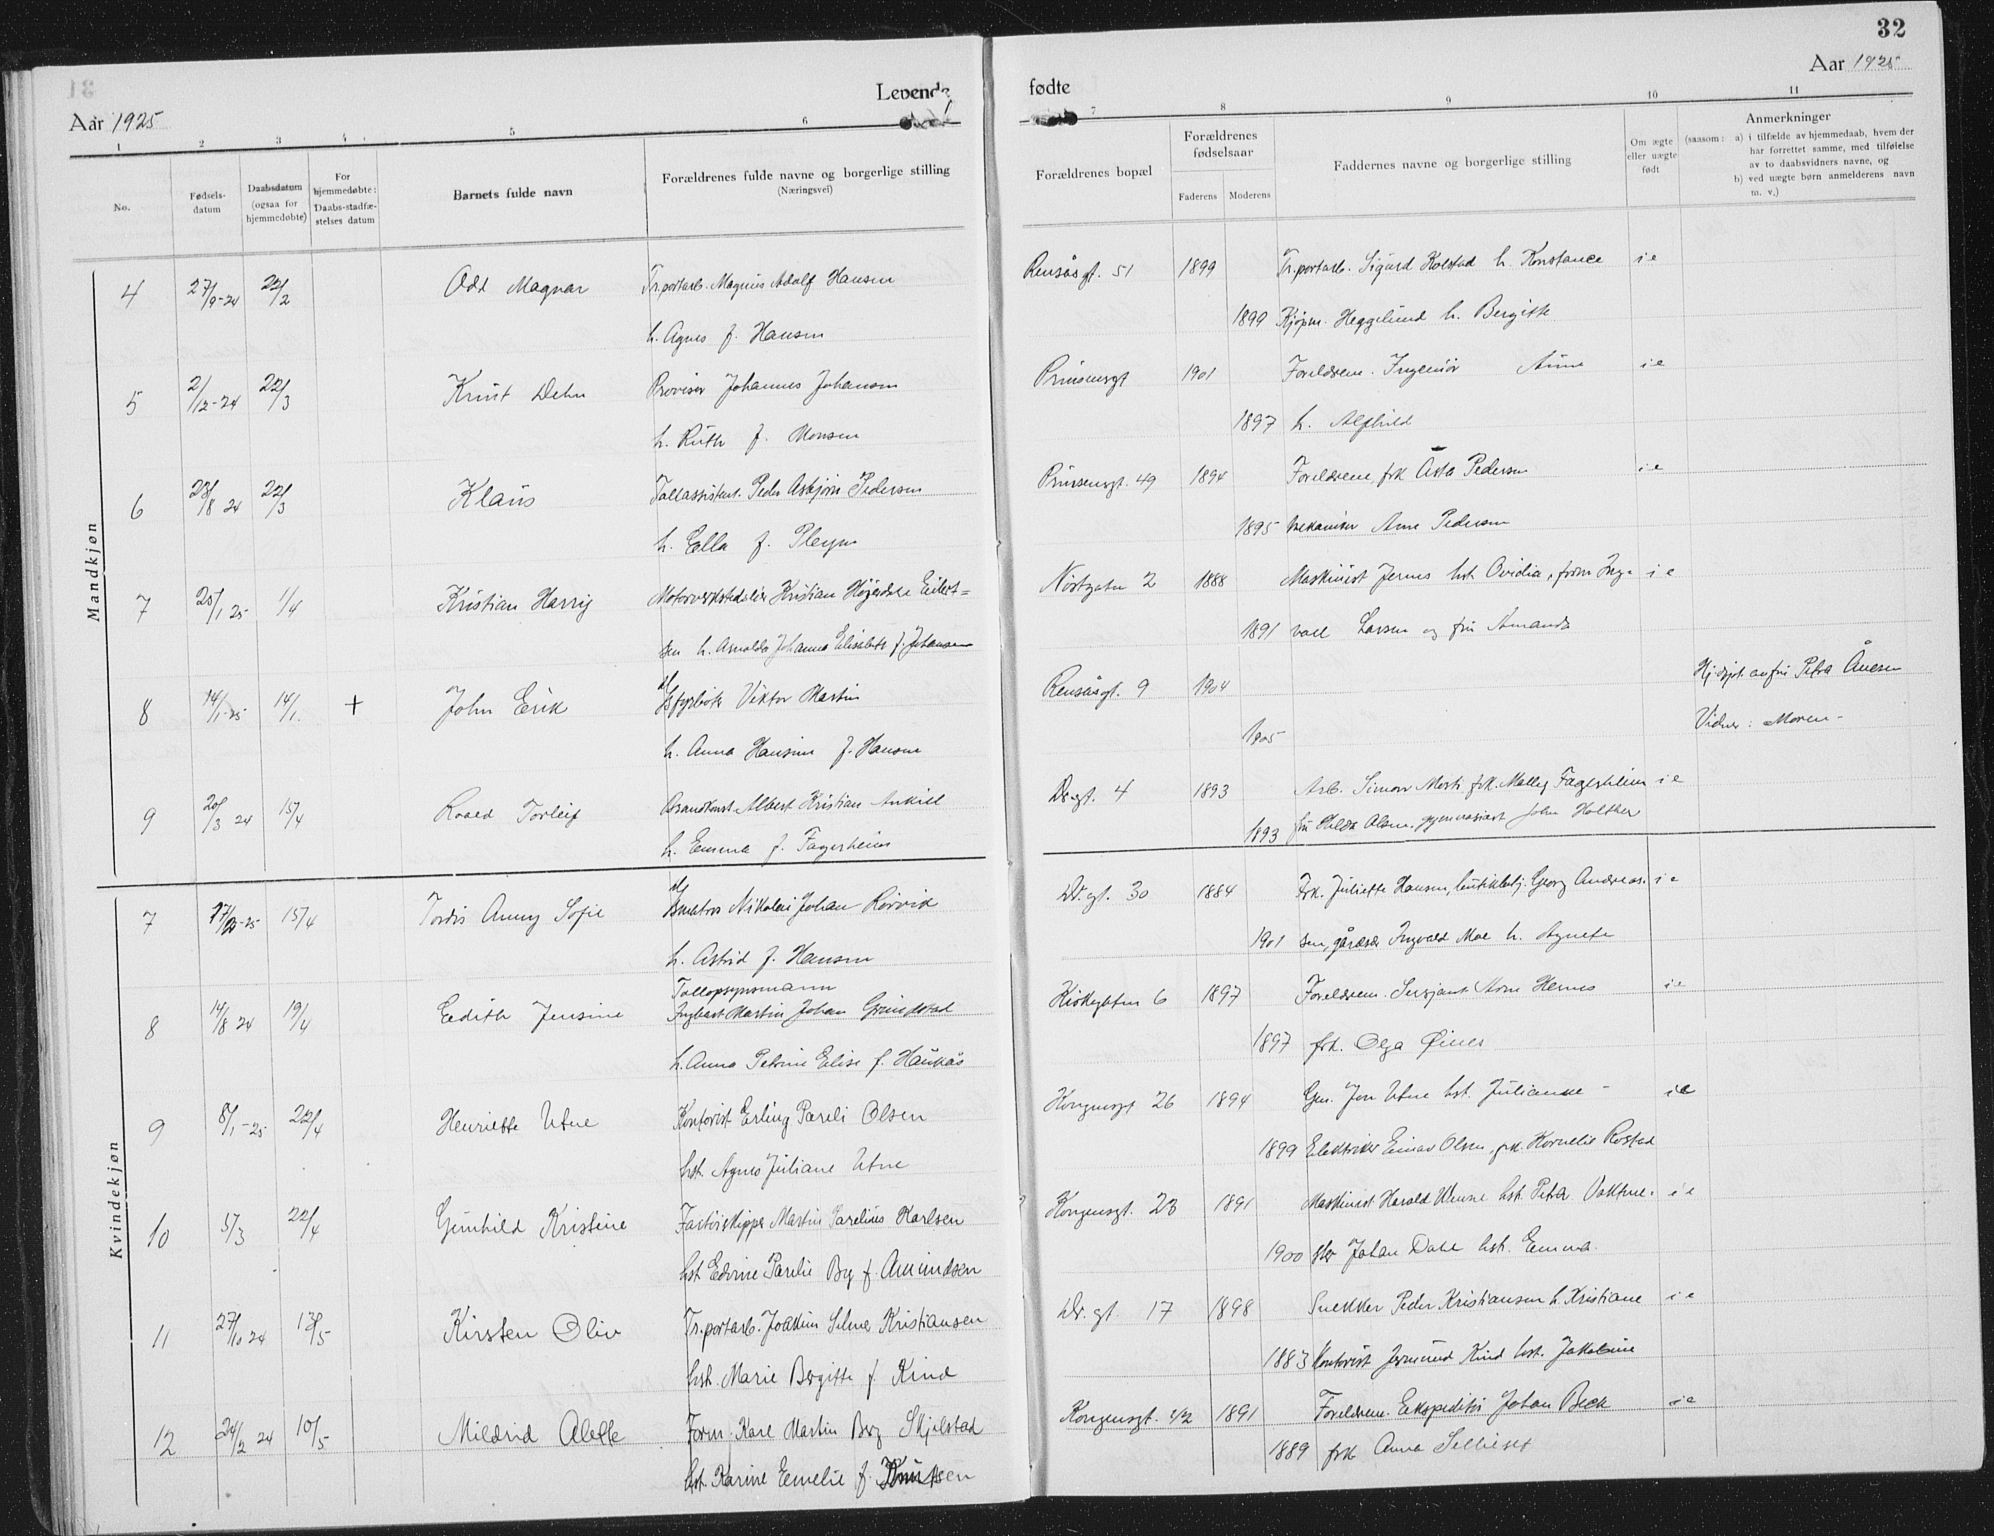 32
Levende fødte
Aar 1925
Aar 1925
1 2 3 4 5 6 7 8 9 10 11
No.
Fødsels-
datum
Daabsdatum
(ogsaa for
hjemmedøbte)
For
hjemmedøbte:
Daabs-stadfæ-
stelses datum
Barnets fulde navn
Forældrenes fulde navne og borgerlige stilling
(Næringsvei)
Forældrenes bopæl
Forældrenes
fødselsaar
Faderens Moderens
Faddernes navne og borgerlige stilling
Om ægte
eller uægte
født
Anmerkninger
(saasom: a) i tilfælde av hjemmedaab, hvem der
har forrettet samme, med tilføielse
av to daabsvidners navne, og
b) ved uægte børn anmelderens navn
m. v.)
Mandkjøn
4 27/9-24 22/2 Odd Magnar Tr.portarb. Magnus Adolf Hansen Rensåsgt. 51 1899 Tr.portarb. Sigurd Kolstad h. Konstance i e
h. Agnes f. Hansen 1899 Kjøpm. Heggelund h. Bergitte
5 2/12-24 22/3 Knut Dehn Provisor Johannes Johansen Prinsensgt 1901 Foreldrene. Ingeniør Aune i e
h. Ruth f. Monsen 1897 h. Alfhild
6 23/8 24 22/3 Klaus Tollassistent. Peder Asbjørn Pedersen Prinsensgt. 49 1894 Foreldrene, frk Åsta Pedersen i e
h. Ella f. Pleym 1895 mekaniker Arne Pedersen
7 25/1 25 1/4 Kristian Harry Motorverkstedeier Kristian Eilert= 2 1888 Maskinist Jernes hst. Ovidia, form Ing- i e
sen h. Arnolda Johanna Elisabeth f. Johansen 1891 vald Larsen og fru Amanda
8 14/1-25 14/1. + John Erik Fyrbøter Viktor Martin Rensåsgt. 9 1904 Hj.døpt av fru Petra Ånesen
h. Anna Hansine f. Hansen 1905 Vidner: Moren -
9 20/3 24 15/4 Roald Torleif Brandkonst. Albert Kristian Dr.gt. 4 1893 Arb. Simon frk. Malley Fagerheim i e
h. Emma f. Fagerheim 1893 fru Hilda Olsen, gymnasiast John Holther
Kvindekjøn
7 15/4 Tordis Anny Sofie Nikolai Johan Rørvik Dr.gt. 30 1884 Frk. Juliette Hansen, butikbetj. Georg Andreas- i e
h. Astrid f. Hansen 1901 sen, Ingvald Moe h. Agnete
Tollopsynsmann
8 14/8 24 19/4 Edith Jensine Ingbart Martin Johan Grindstad 6 1897 Foreldrene. Sersjant Arne Hernes i e
h. Anna Petrine Elise f. Haukås 1897 frk. Olga Øines
9 8/1-25 22/4 Henriette Utne Kontorist Erling Pareli Olsen Kongensgt 26 1894 Gen. Jon Utne hst. Julianne - i e
hst. Agnes Juliane Utne 1899 Elektriker Einar Olsen, frk. Kornelie Rostad
10 5/3 22/4 Gunhild Kristine Martin Parelius Karlsen Kongensgt. 23 1891 Maskinist Harald hst. Petra Vaktme- i e
hst. Edvine Parelie Berg f. Amundsen 1900 ster Johan Dahl hst. Emma.
11 27/10 24 13/5 Kirsten Oliv Tr.portarb. Joakim Selmer Kristiansen Dr.gt 17 1898 Snekker Peder Kristiansen h. Kristiane i e
hst. Marie Bergitte f. Kind 1883 Kontorist Kind hst. Jakobine
12 24/2 24 10/5 Mildrid Alette Form. Karl Martin Berg Skjelstad Kongensgt. 42 1891 Foreldrene. Ekspeditør Johan Beck i e
hst. Karine Emelie f. Knutsen 1889 frk Anna